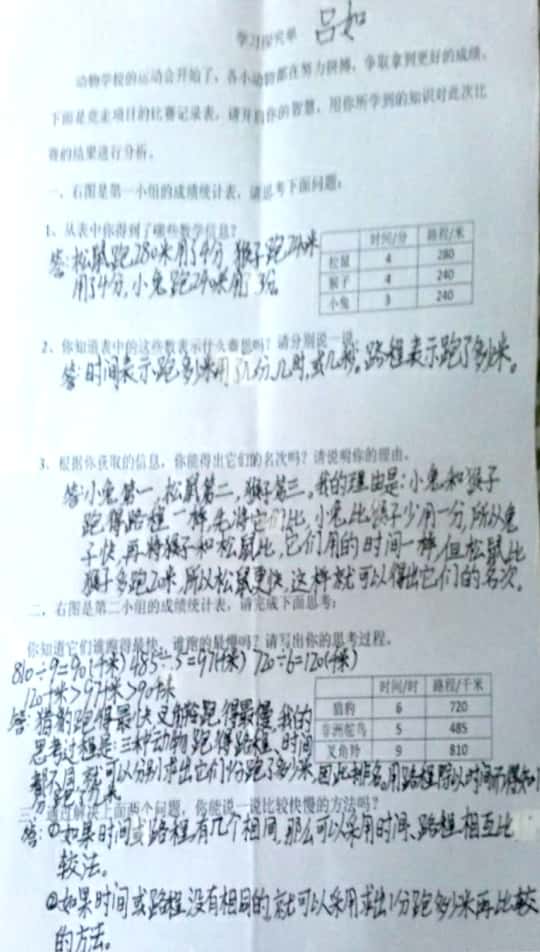 学习探究单 吕如
动物学校的运动会开始了，各小动物都在努力拼搏，争取拿到更好的成绩。
下面是竞走项目的比赛记录表，请开启你的智慧，用你所学到的知识对此次比
赛的结果进行分析。
一、右图是第一小组的成绩统计表，请思考下面问题：
1、从表中你得到了哪些数学信息？
答：松鼠跑280米用了4分，猴子跑240米
用了4分，小兔跑240米用了3分。
时间/分 路程/米
松鼠 4 280
猴子 4 240
小兔 3 240
2、你知道表中的这些数表示什么意思吗？请分别说一说。
答：时间表示跑多少米用了几分、几时，或几秒。路程表示跑了多少米。
3、根据你获取的信息，你能得出它们的名次吗？请说明你的理由。
答：小兔第一，松鼠第二，猴子第三。我的理由是：小兔和猴子
跑得路程一样先将它们比，小兔比猴子少用一分，所以兔
子快，再将猴子和松鼠比，它们用的时间一样，但松鼠比
猴子多跑20米，所以松鼠更快，这样就可以得出它们的名次。
二、右图是第二小组的成绩统计表，请完成下面思考：
你知道它们谁跑得最快，谁跑的最慢吗？请写出你的思考过程。
810÷9=90(千米) 485÷5=97(千米) 720÷6=120(千米)
120千米>97千米>90千米
时间/时 路程/千米
猎豹 6 720
非洲鸵鸟 5 485
叉角羚 9 810
答：猎豹跑得最快叉角羚跑得最慢，我的
思考过程是：三种动物跑得路程、时间
都不同，就可以分别求出它们1分跑了多少米，因此排名，用路程除以时间而得知1
分跑了几米。
三、通过解决上面两个问题，你能说一说比较快慢的方法吗？
答：①如果时间或路程有几个相同，那么可以采用时间、路程相互比
较法。
②如果时间或路程没有相同的，就可以采用求出1分跑多少米再比较
的方法。